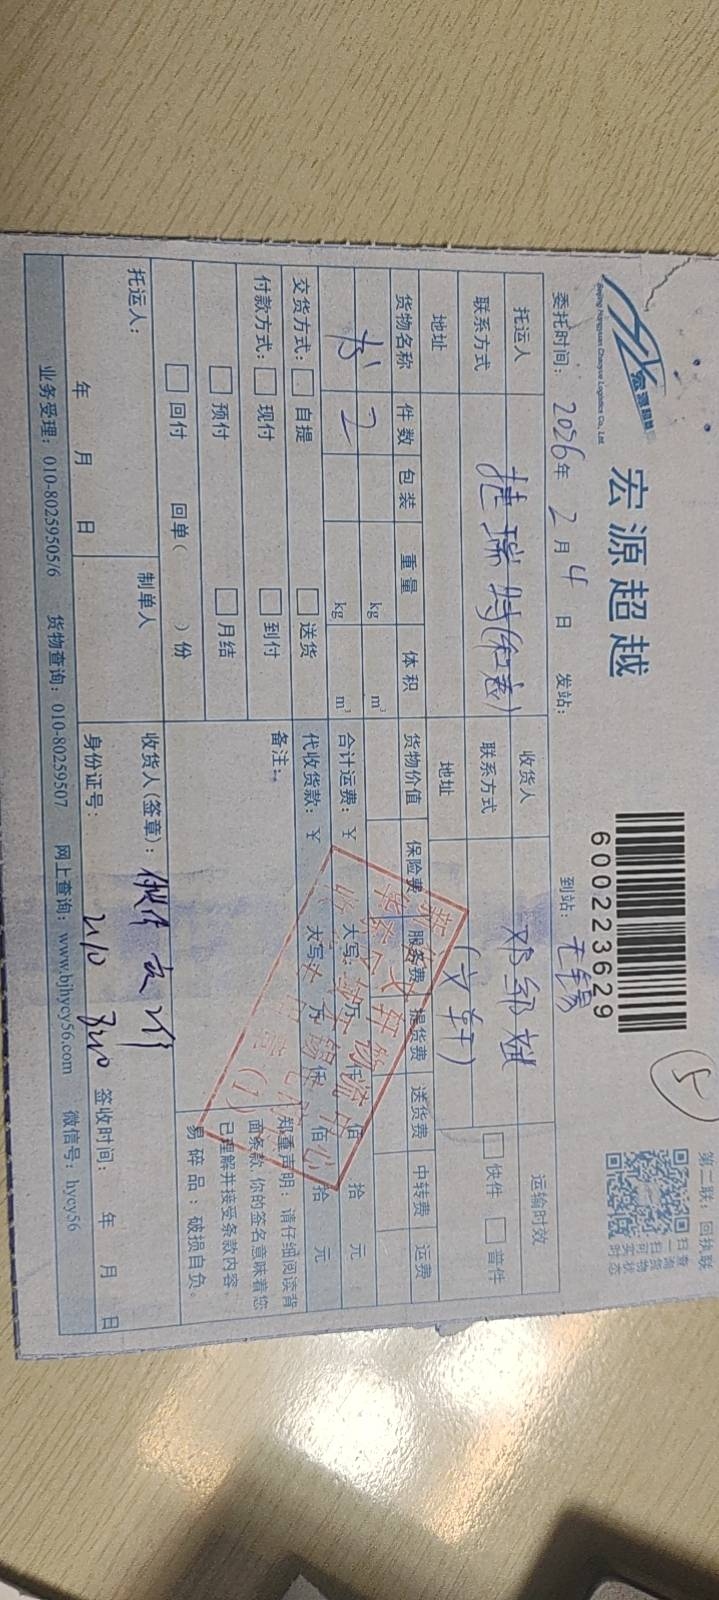 宏源超越
Beijing Hongyuan Chaoyue Logistics Co., Ltd.
宏源超越
600223629
第二联：回执联
扫一扫可实时
查货物状态
委托时间：2026年2月4日 发站： 到站：无锡
托运人 捷瑞特(和志) 收货人 邓邹斌 运输时效
联系方式 联系方式 (文轩) 快件 普件
地址 地址
货物名称 件数 包装 重量 体积 货物价值 保险费 服务费 提货费 送货费 中转费 运费
kg m³
书 2 kg m³ 合计运费：￥ 大写： 万 仟 佰 拾 元
交货方式： 自提 送货 代收货款：￥ 大写： 万 仟 佰 拾 元
付款方式： 现付 到付 备注：
预付 月结
回付 回单( )份
郑重声明：请仔细阅读背面条款，你的签名意味着您
已理解并接受条款内容。
易碎品：破损自负。
托运人： 制单人 收货人(签章)：
年 月 日 身份证号： 210 签收时间： 年 月 日
业务受理：010-80259505/6 货物查询：010-80259507 网上查询：www.bjhycy56.com 微信号：hycy56